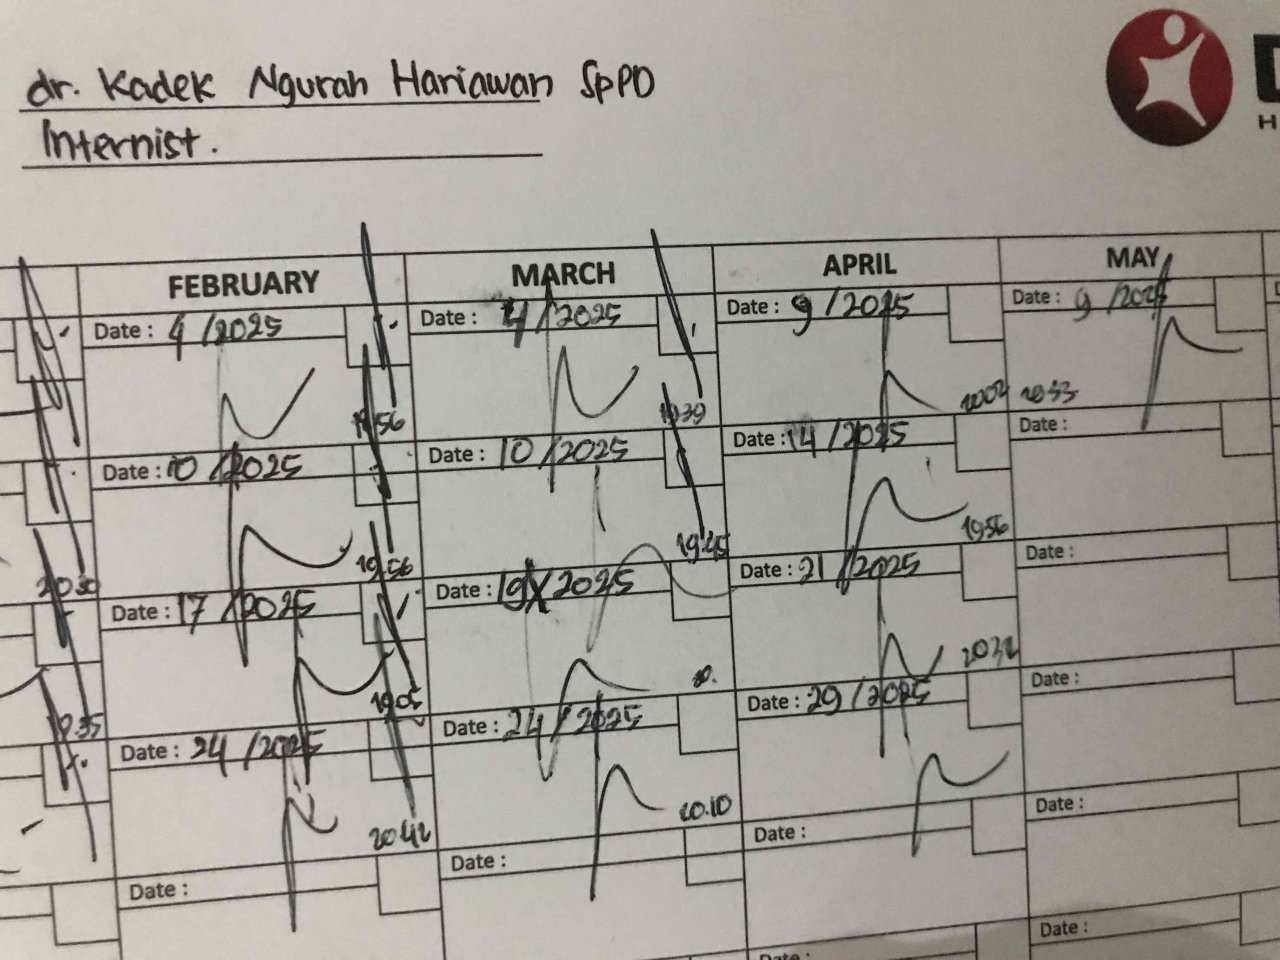 dr. Kadek Ngurah Hariawan SpPD
Internist.
H
FEBRUARY
MARCH
APRIL
MAY
Date : 4 /2025
Date : 4/2025
Date : 9 /2025
Date : 9 /2025
19.56
19.39
20.02
20.33
Date : 10 /2025
Date : 10 /2025
Date : 14 /2025
Date :
20.30
19.56
19.45
19.56
Date : 17 /2025
Date : 19/2025
Date : 21 /2025
Date :
19.35
19.05
20.
20.32
Date : 24 /2025
Date : 24 / 2025
Date : 29 /2025
Date :
20.42
20.10
Date :
Date :
Date :
Date :
Date :
Date :